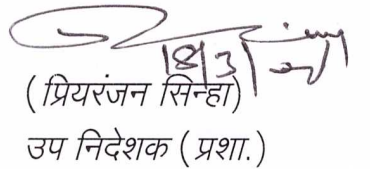 18/3/
(प्रियरंजन सिन्हा)
उप निदेशक (प्रशा.)